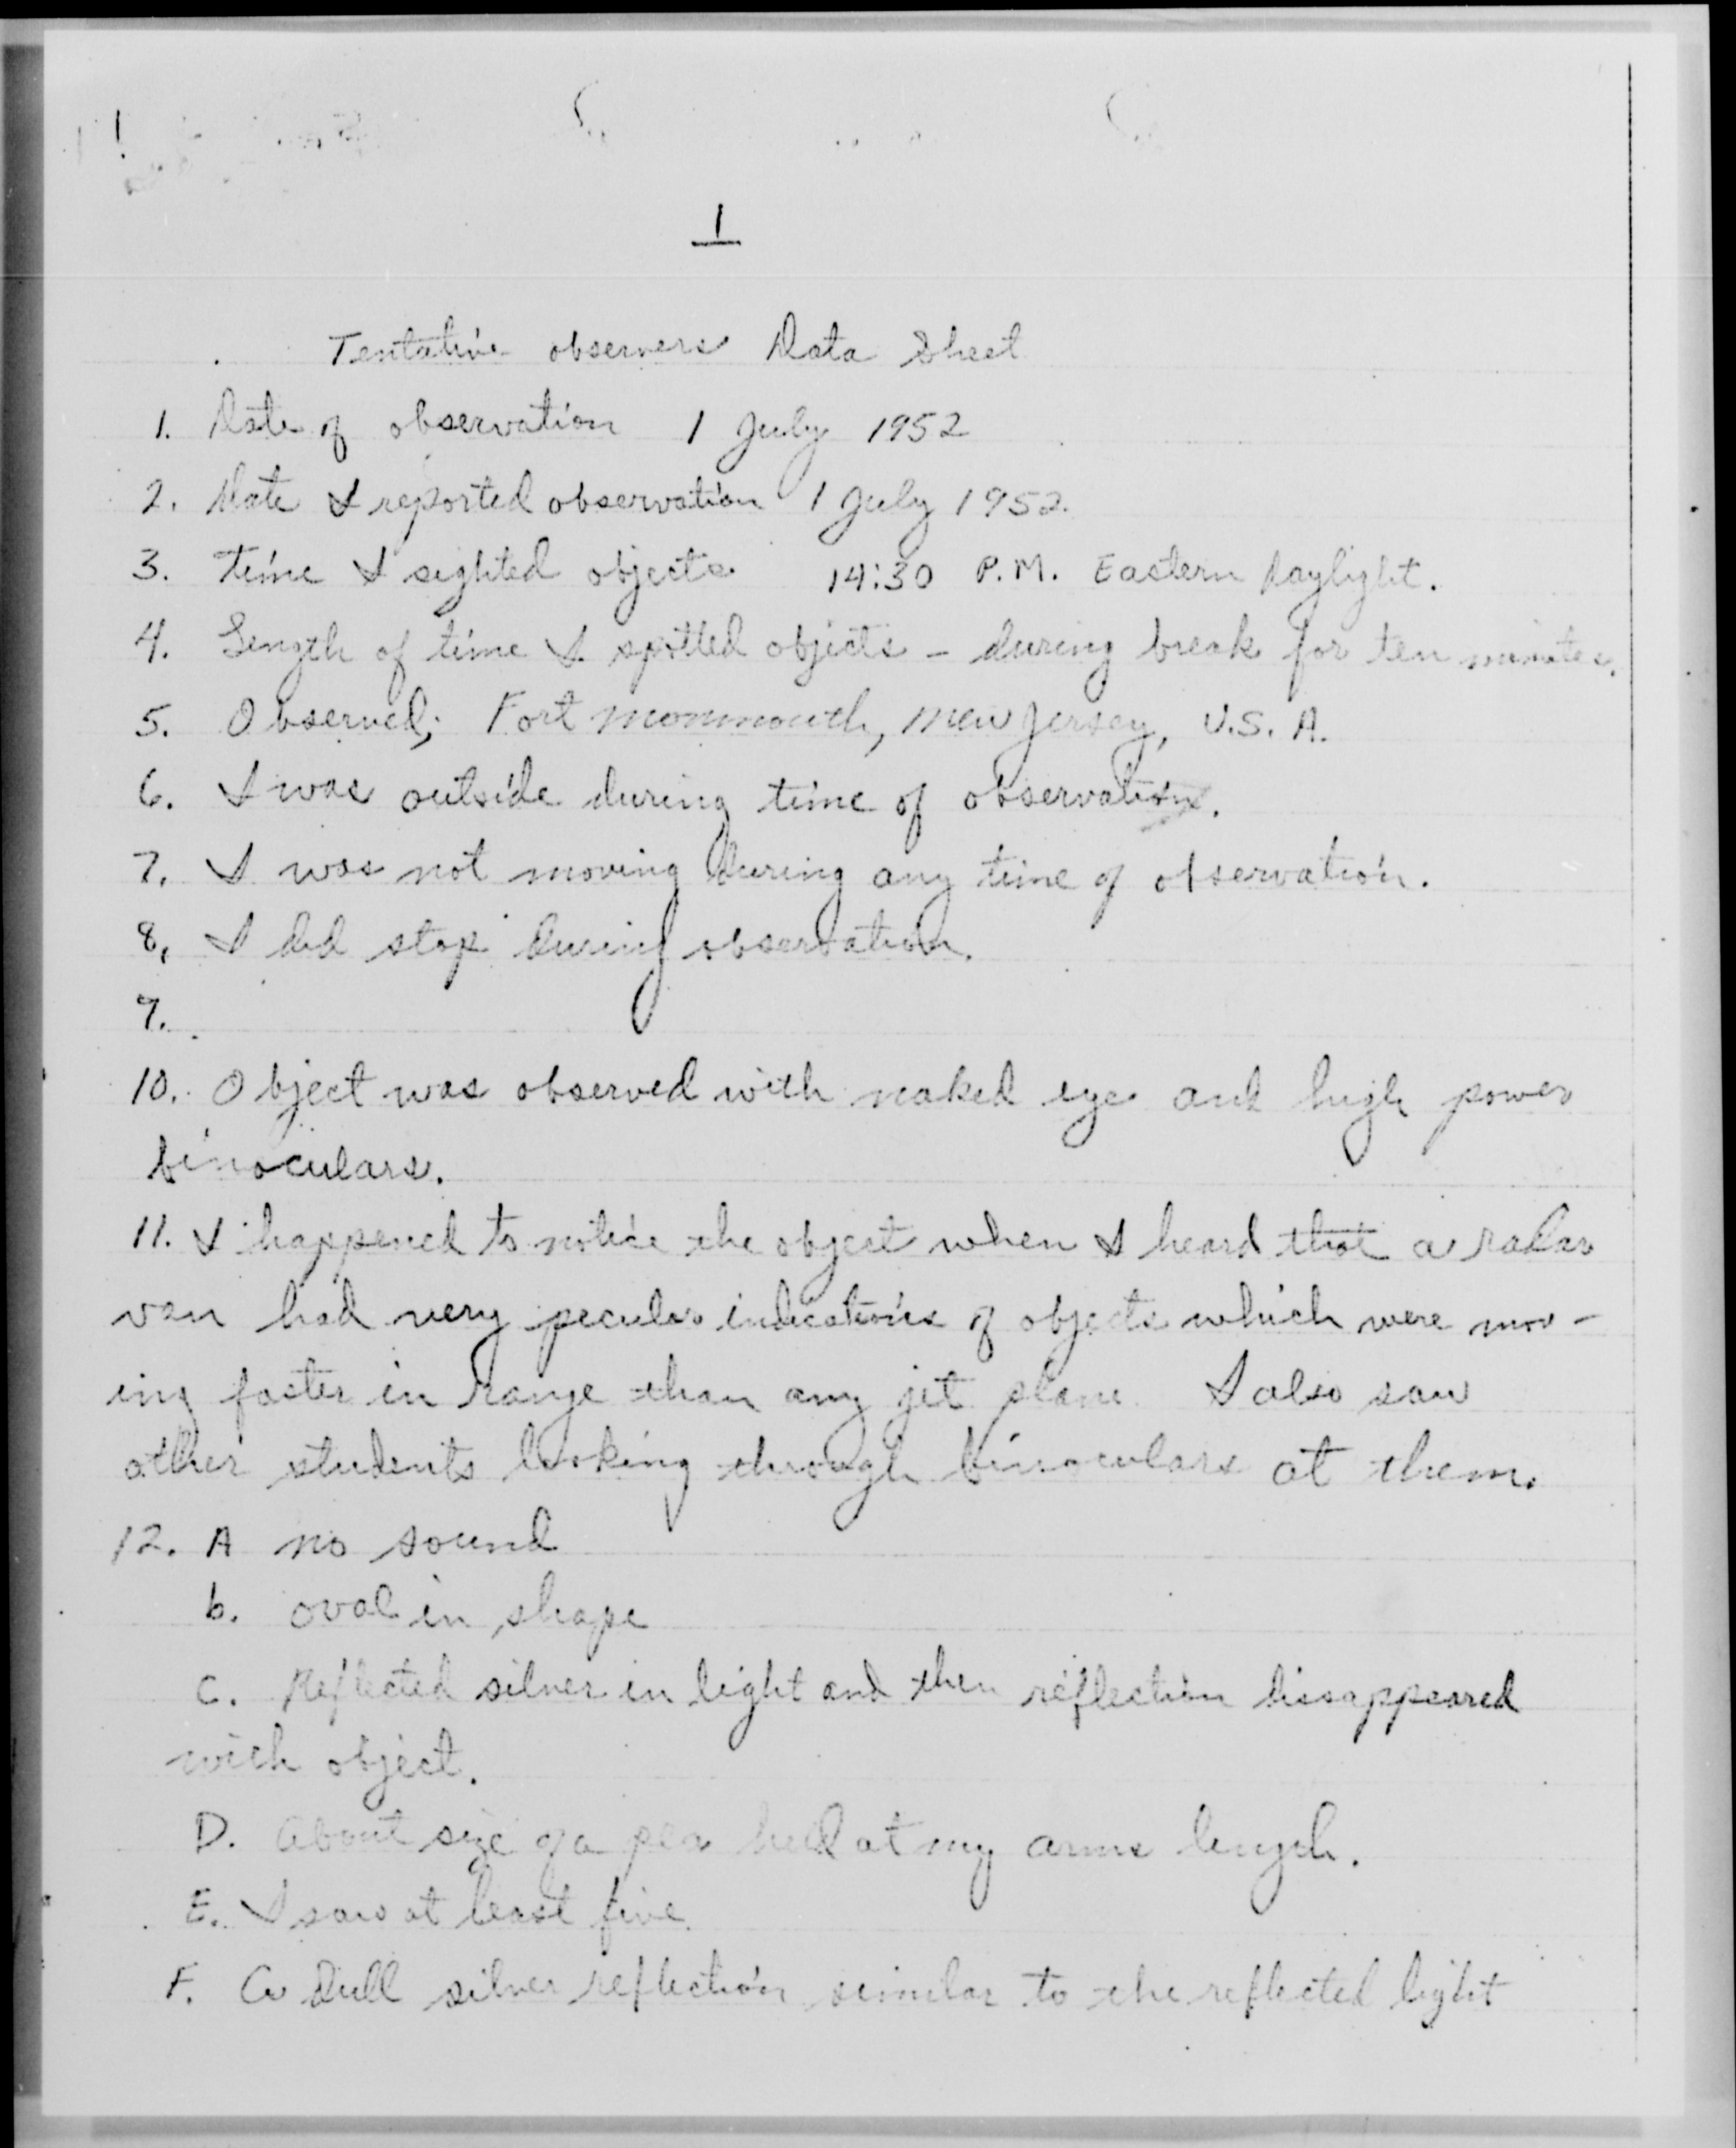 1
Tentative observers Data Sheet
1. Date of observation 1 July 1952
2. Date I reported observation 1 July 1952.
3. Time I sighted objects 14:30 P.M. Eastern Daylight.
4. Length of time I spotted objects - during break for ten minutes.
5. Observed; Fort Monmouth, New Jersey, U.S.A.
6. I was outside during time of observation.
7. I was not moving during any time of observation.
8. I did stop during observation.
9.
10. Object was observed with naked eye and high power
binoculars.
11. I happened to notice the object when I heard that a radar
van had very peculiar indications of objects which were mov-
ing faster in range than any jet plane. I also saw
other students looking through binoculars at them.
12. A no sound
b. oval in shape
C. Reflected silver in light and then reflection dissappeared
with object.
D. About size of a pea held at my arms length.
E. I saw at least five.
F. A dull silver reflection similar to the reflected light